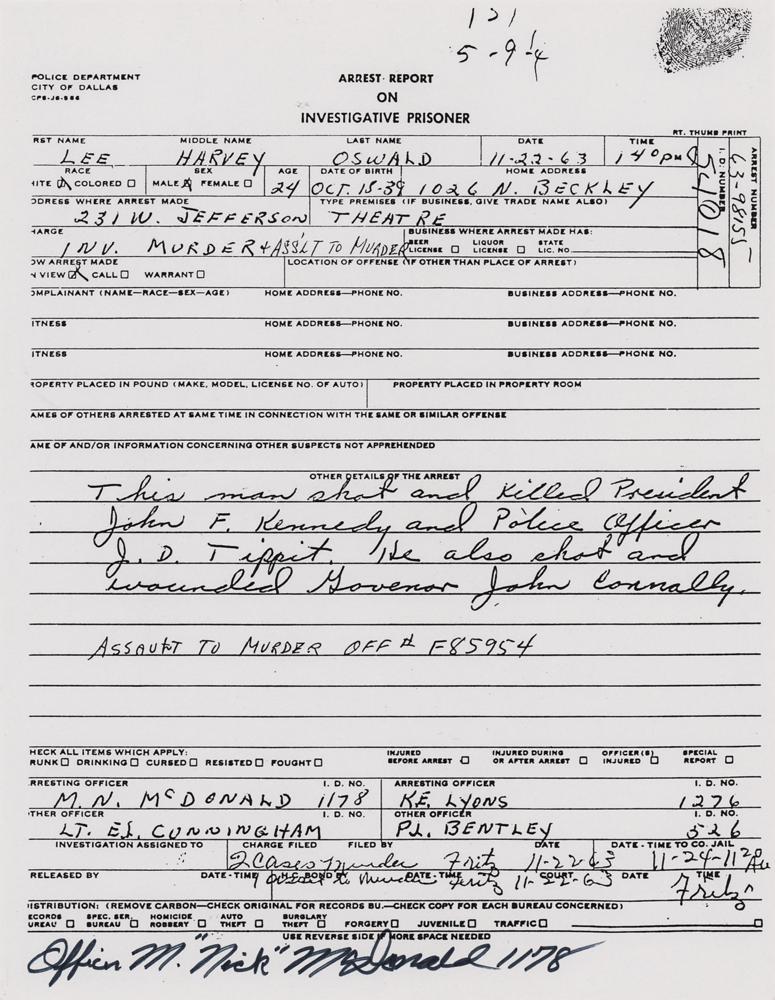 131
5-9 1/4
POLICE DEPARTMENT
CITY OF DALLAS
ARREST REPORT
ON
INVESTIGATIVE PRISONER
RT. THUMB PRINT
RST NAME MIDDLE NAME LAST NAME DATE TIME
LEE HARVEY OSWALD 11-22-63 1 40 PM
RACE SEX AGE DATE OF BIRTH HOME ADDRESS
HITE COLORED MALE FEMALE 24 OCT. 18-39 1026 N. BECKLEY
DDRESS WHERE ARREST MADE TYPE PREMISES (IF BUSINESS, GIVE TRADE NAME ALSO)
231 W. JEFFERSON THEATRE
HARGE BUSINESS WHERE ARREST MADE HAS:
INV. MURDER + ASS'LT TO MURDER BEER LICENSE LIQUOR LICENSE STATE LIC. NO.
I.D. NUMBER 54018
ARREST NUMBER 63-98155
OW ARREST MADE LOCATION OF OFFENSE (IF OTHER THAN PLACE OF ARREST)
N VIEW CALL WARRANT
OMPLAINANT (NAME—RACE—SEX—AGE) HOME ADDRESS—PHONE NO. BUSINESS ADDRESS—PHONE NO.
ITNESS HOME ADDRESS—PHONE NO. BUSINESS ADDRESS—PHONE NO.
ITNESS HOME ADDRESS—PHONE NO. BUSINESS ADDRESS—PHONE NO.
ROPERTY PLACED IN POUND (MAKE, MODEL, LICENSE NO. OF AUTO) PROPERTY PLACED IN PROPERTY ROOM
AMES OF OTHERS ARRESTED AT SAME TIME IN CONNECTION WITH THE SAME OR SIMILAR OFFENSE
AME OF AND/OR INFORMATION CONCERNING OTHER SUSPECTS NOT APPREHENDED
OTHER DETAILS OF THE ARREST
This man shot and killed President
John F. Kennedy and Police Officer
J. D. Tippit. He also shot and
wounded Govenor John Connally.
ASSAULT TO MURDER OFF # F85954
HECK ALL ITEMS WHICH APPLY: INJURED BEFORE ARREST INJURED DURING OR AFTER ARREST OFFICER(S) INJURED SPECIAL REPORT
RUNK DRINKING CURSED RESISTED FOUGHT
RRESTING OFFICER I. D. NO. ARRESTING OFFICER I. D. NO.
M. N. McDONALD 1178 K.E. LYONS 1276
THER OFFICER I. D. NO. OTHER OFFICER I. D. NO.
LT. E.L. CUNNINGHAM P.L. BENTLEY 526
INVESTIGATION ASSIGNED TO CHARGE FILED FILED BY DATE DATE - TIME TO CO. JAIL
2 Cases Murder Fritz 11-22-63 11-24-1120 AM
RELEASED BY DATE - TIME H.C. BOND BY DATE - TIME COURT DATE TIME
to Murder Fritz 11-22-63 Fritz
ISTRIBUTION: (REMOVE CARBON—CHECK ORIGINAL FOR RECORDS BU.—CHECK COPY FOR EACH BUREAU CONCERNED)
ECORDS UREAU SPEC. SER. BUREAU HOMICIDE ROBBERY AUTO THEFT BURGLARY THEFT FORGERY JUVENILE TRAFFIC
USE REVERSE SIDE IF MORE SPACE NEEDED
Officer M. "Nick" McDonald 1178